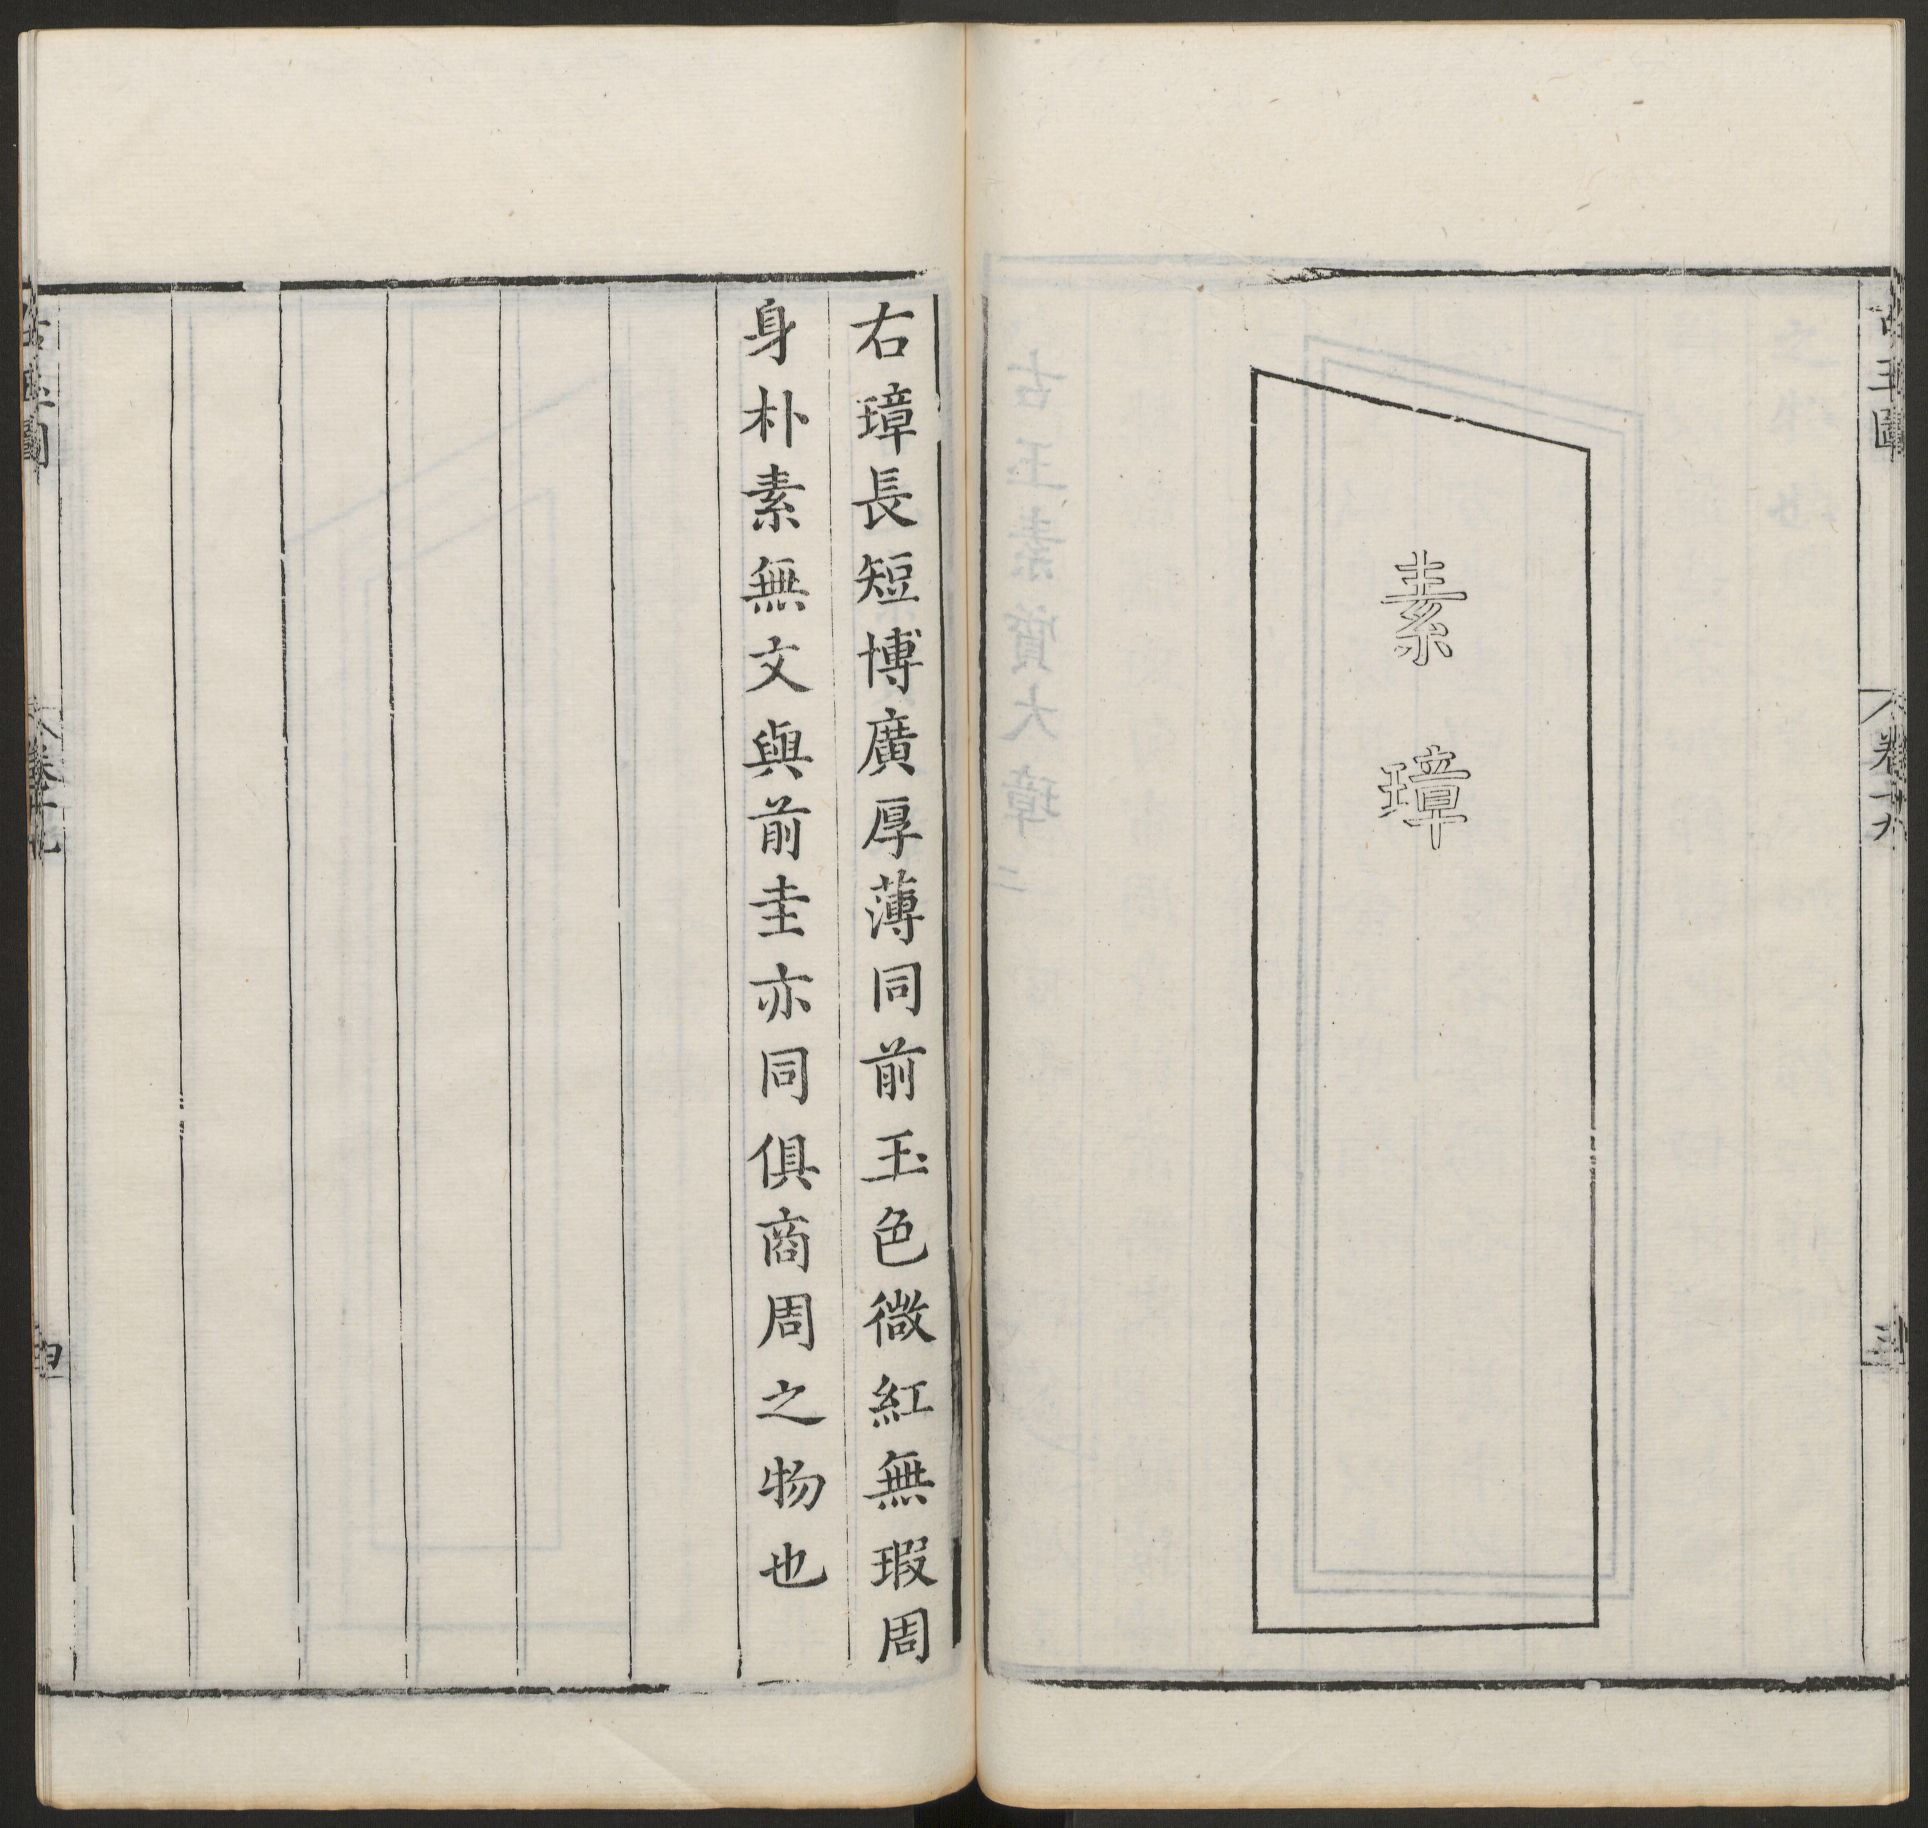 古玉圖
卷十九
三
素璋
右璋長短博廣厚薄同前玉色微紅無瑕周
身朴素無文與前圭亦同俱商周之物也
古玉圖
卷十九
四